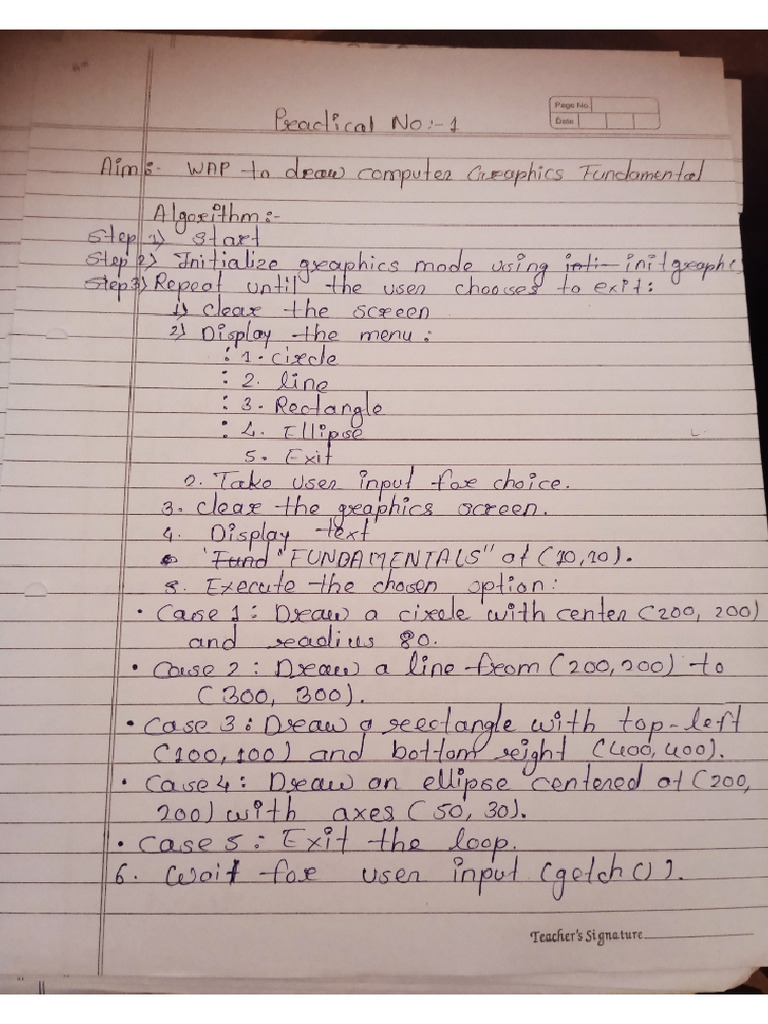 Page No.
Date
Practical No:-1
Aim:- WAP to draw computer Graphics Fundamental
Algorithm:-
Step 1) Start
Step 2) Initialize graphics mode using inti- initgraph(
Step3) Repeat until the user chooses to exit:
1) clear the screen
2) Display the menu:
: 1. circle
: 2. line
: 3. Rectangle
: 4. Ellipse
5. Exit
2. Take user input for choice.
3. clear the graphics screen.
4. Display text
'Fund "FUNDAMENTALS" at (10,10).
5. Execute the chosen option:
• Case 1: Draw a circle with center (200, 200)
and readius 80.
• Case 2: Draw a line from (200,200) to
(300, 300).
• Case 3: Draw a reectangle with top-left
(100,100) and bottom reight (400,400).
• Case 4: Draw an ellipse centered at (200,
200) with axes (50, 30).
• Case 5: Exit the loop.
6. Wait for user input (getch()).
Teacher's Signature